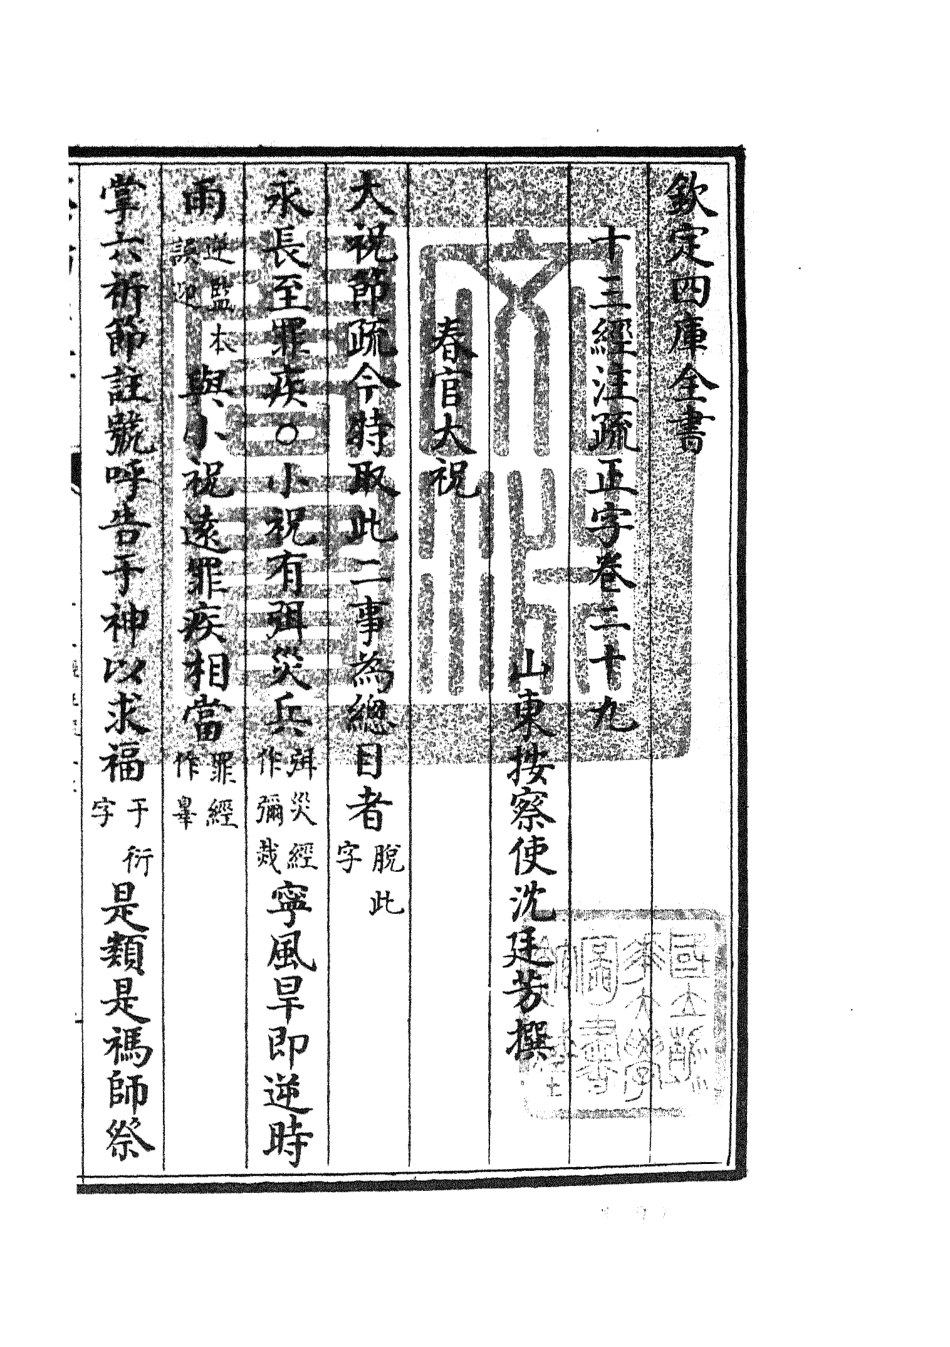 欽定四庫全書
十三經注疏正字卷二十九
山東按察使沈廷芳撰
春官大祝
大祝節疏今特取此二事為總目者脫此字
永長至罪疾○小祝有弭災兵弭災經作彌烖寧風旱即逆時
雨逆監本誤迎與小祝遠罪疾相當罪經作辠
掌六祈節註號呼告于神以求福于衍字是類是禡師祭